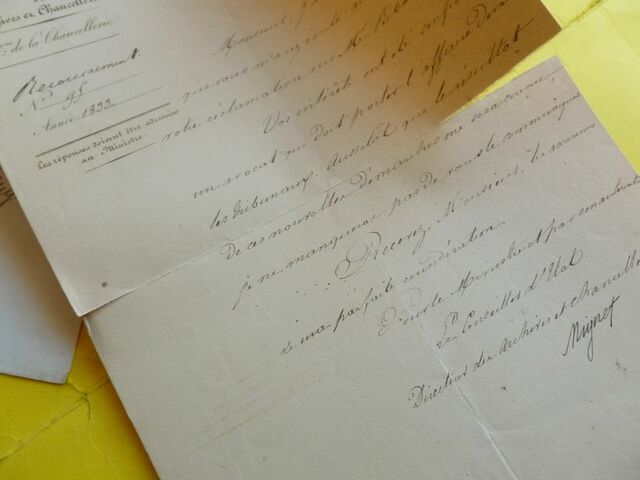 ives et Chancellerie
de la Chancellerie
Recouvrement
No. 95
Année 1833.
Les réponses doivent être adressées
au Ministre.
Monsieur,
que vous
votre réclamation sur Mr.
Vos intérêts ont été
un avocat qui doit porter l'affaire devant
les tribunaux. Aussitôt que le résultat
de ces nouvelles démarches me sera connu,
je ne manquerai pas de vous le communiquer.
Recevez, Monsieur, les assurances
de ma parfaite considération.
Pour le Ministre et par
Le Conseiller d'Etat
Directeur des Archives et Chancelle
Mignet